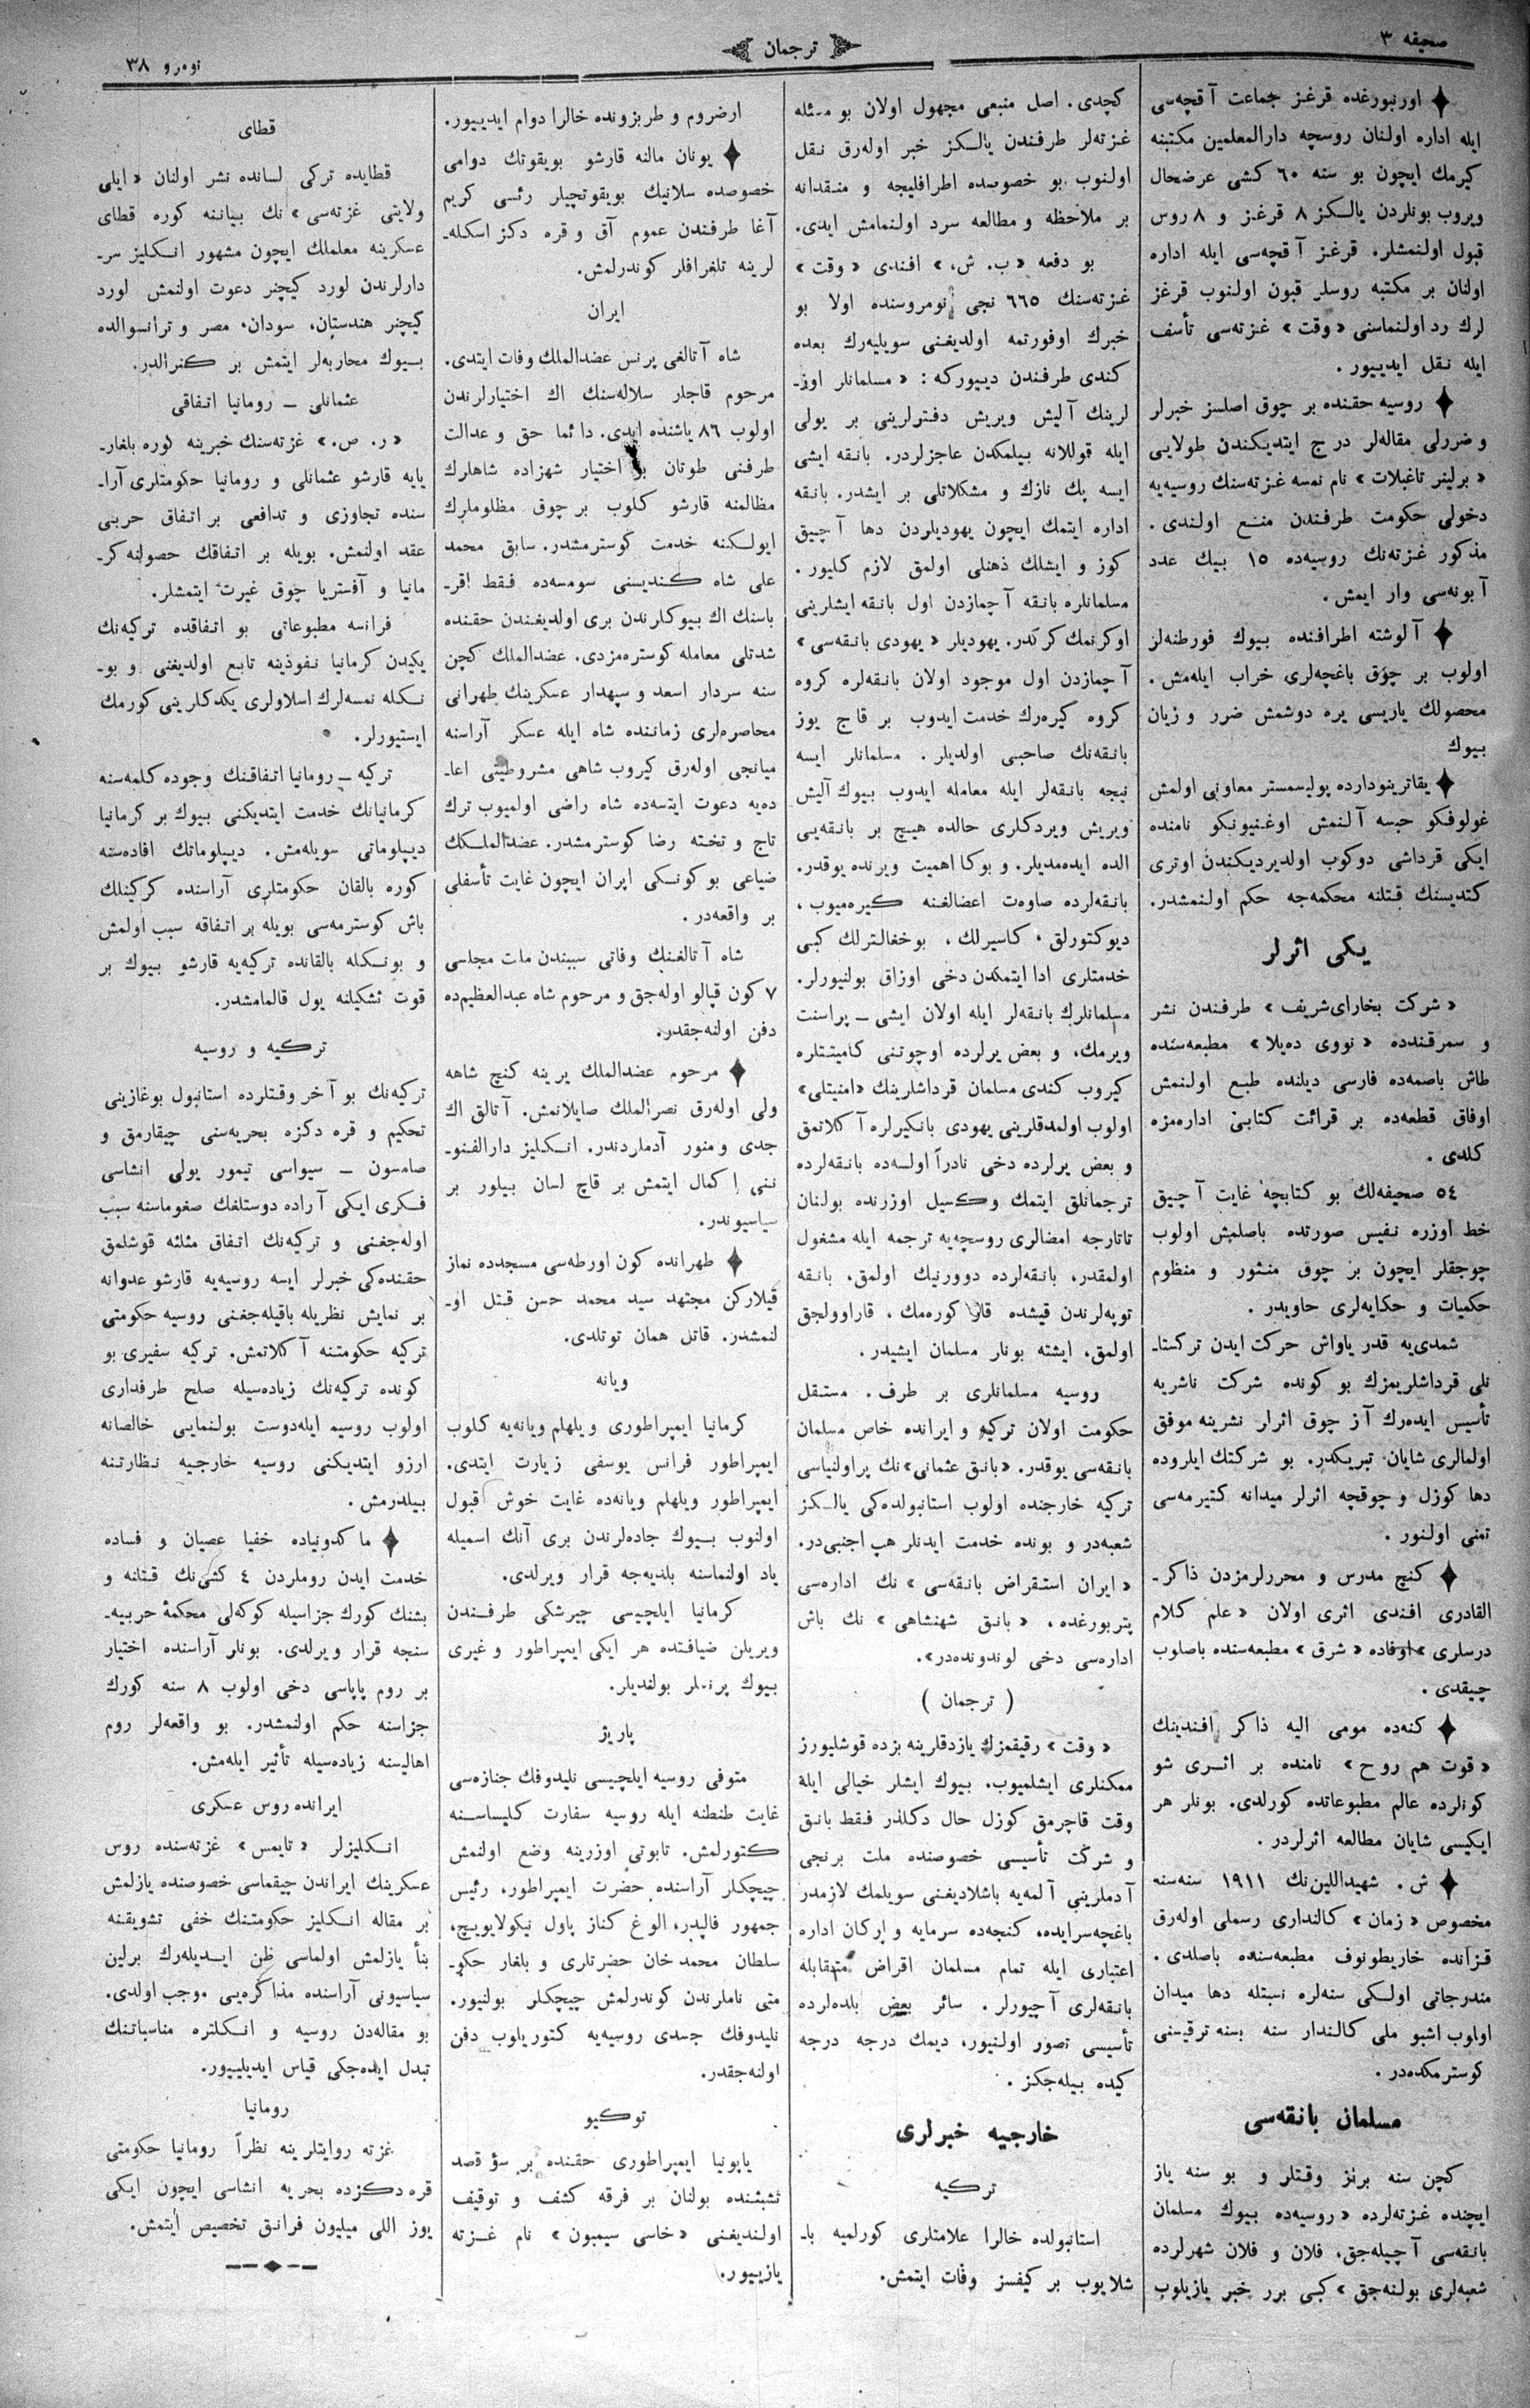 صحیفه ۳
ترجمان
نومرو ۳۸
اورنبورغده قرغز جماعت آقچه‌سی
ایله اداره اولنان روسچه دارالمعلمین مکتبنه
کیرمك ایچون بو سنه ٦۰ کشی عرضحال
ویروب بونلردن یالکز ۸ قرغز و ۸ روس
قبول اولنمشلر. قرغز آقچه‌سی ایله اداره
اولنان بر مکتبه روسلر قبون اولنوب قرغز
لرك رد اولنماسنی « وقت » غزته‌سی تأسف
ایله نقل ایدییور .
روسیه حقنده بر چوق اصلسز خبرلر
و ضررلی مقاله‌لر درج ایتدیکندن طولایی
« برلینر تاغبلات » نام نمسه غزته‌سنك روسیه‌یه
دخولی حکومت طرفندن منع اولندی .
مذکور غزته‌نك روسیه‌ده ۱٥ بیك عدد
آبونه‌سی وار ایمش .
آلوشته اطرافنده بیوك فورطنه‌لر
اولوب بر چوق باغچه‌لری خراب ایله‌مش .
محصولك یاریسی یره دوشمش ضرر و زیان
بیوك
یقاترینودارده پولیسمستر معاونی اولمش
غولوفکو حبسه آلنمش اوغنیونکو نامنده
ایکی قرداشی دوکوب اولدیردیکندن اوتری
کندیسنك قتلنه محکمه‌جه حکم اولنمشدر.
یکی اثرلر
« شرکت بخارای‌شریف » طرفندن نشر
و سمرقندده « نووی ده‌یلا » مطبعه‌سنده
طاش باصمه‌ده فارسی دیلنده طبع اولنمش
اوفاق قطعه‌ده بر قرائت کتابی اداره‌مزه
کلدی .
٥٤ صحیفه‌لك بو کتابچه غایت آچیق
خط اوزره نفیس صورتده باصلمش اولوب
چوجقلر ایچون بر چوق منثور و منظوم
حکمیات و حکایه‌لری حاویدر .
شمدی‌یه قدر یاواش حرکت ایدن ترکستا-
نلی قرداشلریمزك بو کونده شرکت ناشریه
تأسیس ایده‌رك آز چوق اثرلر نشرینه موفق
اولمالری شایان تبریکدر. بو شرکتك ایلروده
دها کوزل و چوقچه اثرلر میدانه کتیرمه‌سی
تمنی اولنور .
کنچ مدرس و محررلرمزدن ذاکر-
القادری افندی اثری اولان « علم کلام
درسلری » اوفاده « شرق » مطبعه‌سنده باصلوب
چیقدی .
کنه‌ده مومی الیه ذاکر افندینك
« قوت هم روح » نامنده بر اثری شو
کونلرده عالم مطبوعاتده کورلدی. بونلر هر
ایکیسی شایان مطالعه اثرلردر .
ش. شهیداللین‌نك ۱۹۱۱ سنه‌سنه
مخصوص « زمان » کالنداری رسملی اوله‌رق
قزانده خاریطونوف مطبعه‌سنده باصلدی .
مندرجاتی اولکی سنه‌لره نسبتله دها میدان
اولوب اشبو ملی کالندار سنه بسنه ترقیسنی
کوسترمکده‌در .
مسلمان بانقه‌سی
کچن سنه برنز وقتلر و بو سنه یاز
ایچنده غزته‌لرده « روسیه‌ده بیوك مسلمان
بانقه‌سی آچیله‌جق، فلان و فلان شهرلرده
شعبه‌لری بولنه‌جق » کبی برر خبر یازیلوب
کچدی. اصل منبعی مجهول اولان بو مسئله
غزته‌لر طرفندن یالکز خبر اوله‌رق نقل
اولنوب بو خصوصده اطرافلیجه و منقدانه
بر ملاحظه و مطالعه سرد اولنمامش ایدی.
بو دفعه « ب. ش. » افندی « وقت »
غزته‌سنك ٦٦٥ نجی نومروسنده اولا بو
خبرك اوفورتمه اولدیغنی سویلیه‌رك بعده
کندی طرفندن دییورکه : « مسلمانلر اوز-
لرینك آلیش ویریش دفترلرینی بر یولی
ایله قوللانه بیلمکدن عاجزلردر. بانقه ایشی
ایسه پك نازك و مشکلاتلی بر ایشدر. بانقه
اداره ایتمك ایچون یهودیلردن دها آچیق
کوز و ایشلك ذهنلی اولمق لازم کلیور .
مسلمانلره بانقه آچمازدن اول بانقه ایشلرینی
اوکرنمك کرکدر. یهودیلر « یهودی بانقه‌سی »
آچمازدن اول موجود اولان بانقه‌لره کروه
کروه کیره‌رك خدمت ایدوب بر قاج یوز
بانقه‌نك صاحبی اولدیلر . مسلمانلر ایسه
نیجه بانقه‌لر ایله معامله ایدوب بیوك آلیش
ویریش ویردکلری حالده هیچ بر بانقه‌یی
الده ایده‌مدیلر. و بوکا اهمیت ویرنده یوقدر.
بانقه‌لرده صاوەت اعضالغنه کیره‌میوب ،
دیوکتورلق ، کاسیرلك ، بوخغالترلك کبی
خدمتلری ادا ایتمکدن دخی اوزاق بولنیورلر.
مسلمانلرك بانقه‌لر ایله اولان ایشی — پراسنت
ویرمك، و بعض یرلرده اوچوتنی کامیتتلره
کیروب کندی مسلمان قرداشلرینك « امنیتلی »
اولوب اولمدقلرینی یهودی بانکیرلره آکلاتمق
و بعض یرلرده دخی نادراً اولسه‌ده بانقه‌لرده
ترجمانلق ایتمك وکسیل اوزرنده بولنان
تاتارجه امضالری روسچه‌یه ترجمه ایله مشغول
اولمقدر، بانقه‌لرده دوورنیك اولمق، بانقه
توپه‌لرندن قیشده قار کوره‌مك ، قاراوولجق
اولمق، ایشته بونلر مسلمان ایشیدر .
روسیه مسلمانلری بر طرف . مستقل
حکومت اولان ترکیه و ایرانده خاص مسلمان
بانقه‌سی یوقدر. « بانق عثمانی » نك پراولنیاسی
ترکیه خارجنده اولوب استانبولده‌کی یالکز
شعبه‌در و بونده خدمت ایدنلر هپ اجنبی‌در.
« ایران استقراض بانقه‌سی » نك اداره‌سی
پتربورغده ، « بانق شهنشاهی » نك باش
اداره‌سی دخی لوندونده‌در».
( ترجمان )
« وقت » رقیقمزك یازدقلرینه بزده قوشلیورز
ممکنلری ایشلمیوب. بیوك ایشلر خیالی ایله
وقت قاچرمق کوزل حال دکلدر فقط بانق
و شرکت تأسیسی خصوصنده ملت برنجی
آدملرینی آلمه‌یه باشلادیغنی سویلمك لازمدر
باغچه‌سرایده، کنجه‌ده سرمایه و ارکان اداره
اعتباری ایله تمام مسلمان اقراض متقابله
بانقه‌لری آچیورلر . سائر بعض بلده‌لرده
تأسیسی تصور اولنیور، دیمك درجه درجه
کیده بیله‌جکز .
خارجیه خبرلری
ترکیه
استانبولده خالرا علامتلری کورلمیه با-
شلایوب بر کیفسز وفات ایتمش.
ارضروم و طربزونده خالرا دوام ایدییور.
یونان مالنه قارشو بویقوتك دوامی
خصوصده سلانیك بویقوتچیلر رئسی کریم
آغا طرفندن عموم آق و قره دکز اسکله-
لرینه تلغرافلر کوندرلمش.
ایران
شاه آتالغی پرنس عضدالملك وفات ایتدی.
مرحوم قاجار سلاله‌سنك اك اختیارلرندن
اولوب ۸٦ یاشنده ایدی. دائما حق و عدالت
طرفنی طوتان بو اختیار شهزاده شاهلرك
مظالمنه قارشو کلوب بر چوق مظلوملرك
ایولکنه خدمت کوسترمشدر. سابق محمد
علی شاه کندیسنی سومسه‌ده فقط اقر-
باسنك اك بیوکلرندن بری اولدیغندن حقنده
شدتلی معامله کوستره‌مزدی. عضدالملك کچن
سنه سردار اسعد و سپهدار عسکرینك طهرانی
محاصره‌لری زماننده شاه ایله عسکر آراسنه
میانجی اوله‌رق کیروب شاهی مشروطیتی اعا-
ده‌یه دعوت ایتسه‌ده شاه راضی اولمیوب ترك
تاج و تخته رضا کوسترمشدر. عضدالملکك
ضیاعی بو کونکی ایران ایچون غایت تأسفلی
بر واقعه‌در.
شاه آتالغنك وفاتی سببندن ملت مجلسی
۷ کون قپالو اوله‌جق و مرحوم شاه عبدالعظیم‌ده
دفن اولنه‌جقدر.
مرحوم عضدالملك یرینه کنچ شاهه
ولی اوله‌رق نصرالملك صایلانمش. آتالق اك
جدی و منور آدملردندر. انکلیز دارالفنو-
ننی اکمال ایتمش بر قاچ لسان بیلور بر
سیاسیوندر.
طهرانده کون اورطه‌سی مسجدده نماز
قیلارکن مجتهد سید محمد حسن قتل او-
لنمشدر. قاتل همان توتلدی.
ویانه
کرمانیا ایمپراطوری ویلهلم ویانه‌یه کلوب
ایمپراطور فرانس یوسفی زیارت ایتدی.
ایمپراطور ویلهلم ویانه‌ده غایت خوش قبول
اولنوب بیوك جاده‌لرندن بری آنك اسمیله
یاد اولنماسنه بلدیه‌جه قرار ویرلدی.
کرمانیا ایلچیسی چیرشکی طرفندن
ویریلن ضیافتده هر ایکی ایمپراطور و غیری
بیوك پرنسلر بولندیلر.
پاریژ
متوفی روسیه ایلچیسی نلیدوفك جنازه‌سی
غایت طنطنه ایله روسیه سفارت کلیساسنه
کتورلمش. تابوتی اوزرینه وضع اولنمش
چیچکلر آراسنده حضرت ایمپراطور، رئیس
جمهور فالییر، الوغ کناز پاول نیکولایویچ،
سلطان محمد خان حضرتلری و بلغار حکو-
متی ناملرندن کوندرلمش چیچکلر بولنیور.
نلیدوفك جسدی روسیه‌یه کتوریلوب دفن
اولنه‌جقدر.
توکیو
یاپونیا ایمپراطوری حقنده بر سؤ قصد
تشبثنده بولنان بر فرقه کشف و توقیف
اولندیغنی « خاسی سیمبون » نام غزته
یازییور.
قطای
قطایده ترکی لسانده نشر اولنان « ایلی
ولایتی غزته‌سی » نك بیاننه کوره قطای
عسکرینه معلملك ایچون مشهور انکلیز سر-
دارلرندن لورد کیچنر دعوت اولنمش لورد
کیچنر هندستان، سودان، مصر و ترانسوالده
بیوك محاربه‌لر ایتمش بر کنرالدر.
عثمانلی — رومانیا اتفاقی
« ر. ص. » غزته‌سنك خبرینه کوره بلغار-
یایه قارشو عثمانلی و رومانیا حکومتلری آرا-
سنده تجاوزی و تدافعی بر اتفاق حربی
عقد اولنمش. بویله بر اتفاقك حصولنه کر-
مانیا و آفستریا چوق غیرت ایتمشلر.
فرانسه مطبوعاتی بو اتفاقده ترکیه‌نك
یکیدن کرمانیا نفوذینه تابع اولدیغنی و بو-
نکله نمسه‌لرك اسلاولری یکدکلرینی کورمك
ایستیورلر.
ترکیه — رومانیا اتفاقنك وجوده کلمه‌سنه
کرمانیانك خدمت ایتدیکنی بیوك بر کرمانیا
دیپلوماتی سویله‌مش. دیپلوماتك افاده‌سنه
کوره بالقان حکومتلری آراسنده کرکینلك
باش کوسترمه‌سی بویله بر اتفاقه سبب اولمش
و بونکله بالقانده ترکیه‌یه قارشو بیوك بر
قوت تشکیلنه یول قالمامشدر.
ترکیه و روسیه
ترکیه‌نك بو آخر وقتلرده استانبول بوغازینی
تحکیم و قره دکزه بحریه‌سنی چیقارمق و
صامسون — سیواسی تیمور یولی انشاسی
فکری ایکی آراده دوستلغك صغوماسنه سبب
اوله‌جغنی و ترکیه‌نك اتفاق مثلثه قوشلمق
حقنده‌کی خبرلر ایسه روسیه‌یه قارشو عدوانه
بر نمایش نظریله باقیله‌جغنی روسیه حکومتی
ترکیه حکومتنه آکلاتمش. ترکیه سفیری بو
کونده ترکیه‌نك زیاده‌سیله صلح طرفداری
اولوب روسیه ایله‌دوست بولنمایی خالصانه
ارزو ایتدیکنی روسیه خارجیه نظارتنه
بیلدرمش .
ماکدونیاده خفیا عصیان و فساده
خدمت ایدن روملردن ٤ کشی‌نك قتلنه و
بشنك کورك جزاسیله کوکه‌لی محکمهٔ حربیه-
سنجه قرار ویرلدی. بونلر آراسنده اختیار
بر روم پاپاسی دخی اولوب ۸ سنه کورك
جزاسنه حکم اولنمشدر. بو واقعه‌لر روم
اهالیسنه زیاده‌سیله تأثیر ایله‌مش.
ایرانده روس عسکری
انکلیزلر « تایمس » غزته‌سنده روس
عسکرینك ایراندن چیقماسی خصوصنده یازلمش
بر مقاله انکلیز حکومتنك خفی تشویقنه
بنأ یازلمش اولماسی ظن ایدیله‌رك برلین
سیاسیونی آراسنده مذاکره‌یی موجب اولدی.
بو مقاله‌دن روسیه و انکلتره مناسباتنك
تبدل ایده‌جکی قیاس ایدیلییور.
رومانیا
غزته روایتلرینه نظراً رومانیا حکومتی
قره دکزده بحریه انشاسی ایچون ایکی
یوز اللی میلیون فرانق تخصیص ایتمش.